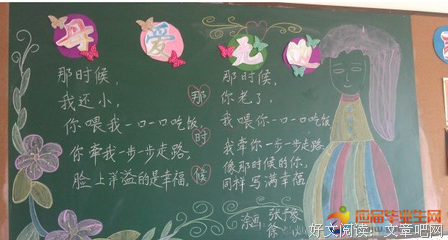 母爱无边
那时候，
我还小，
你喂我一口一口吃饭，
你牵我一步一步走路，
脸上洋溢的是幸福，
那时候
那时候，
你老了，
我喂你一口一口吃饭，
我牵你一步一步走路，
像那时候的你，
同样写满幸福。
应届毕业生网
好文阅读：文章吧网